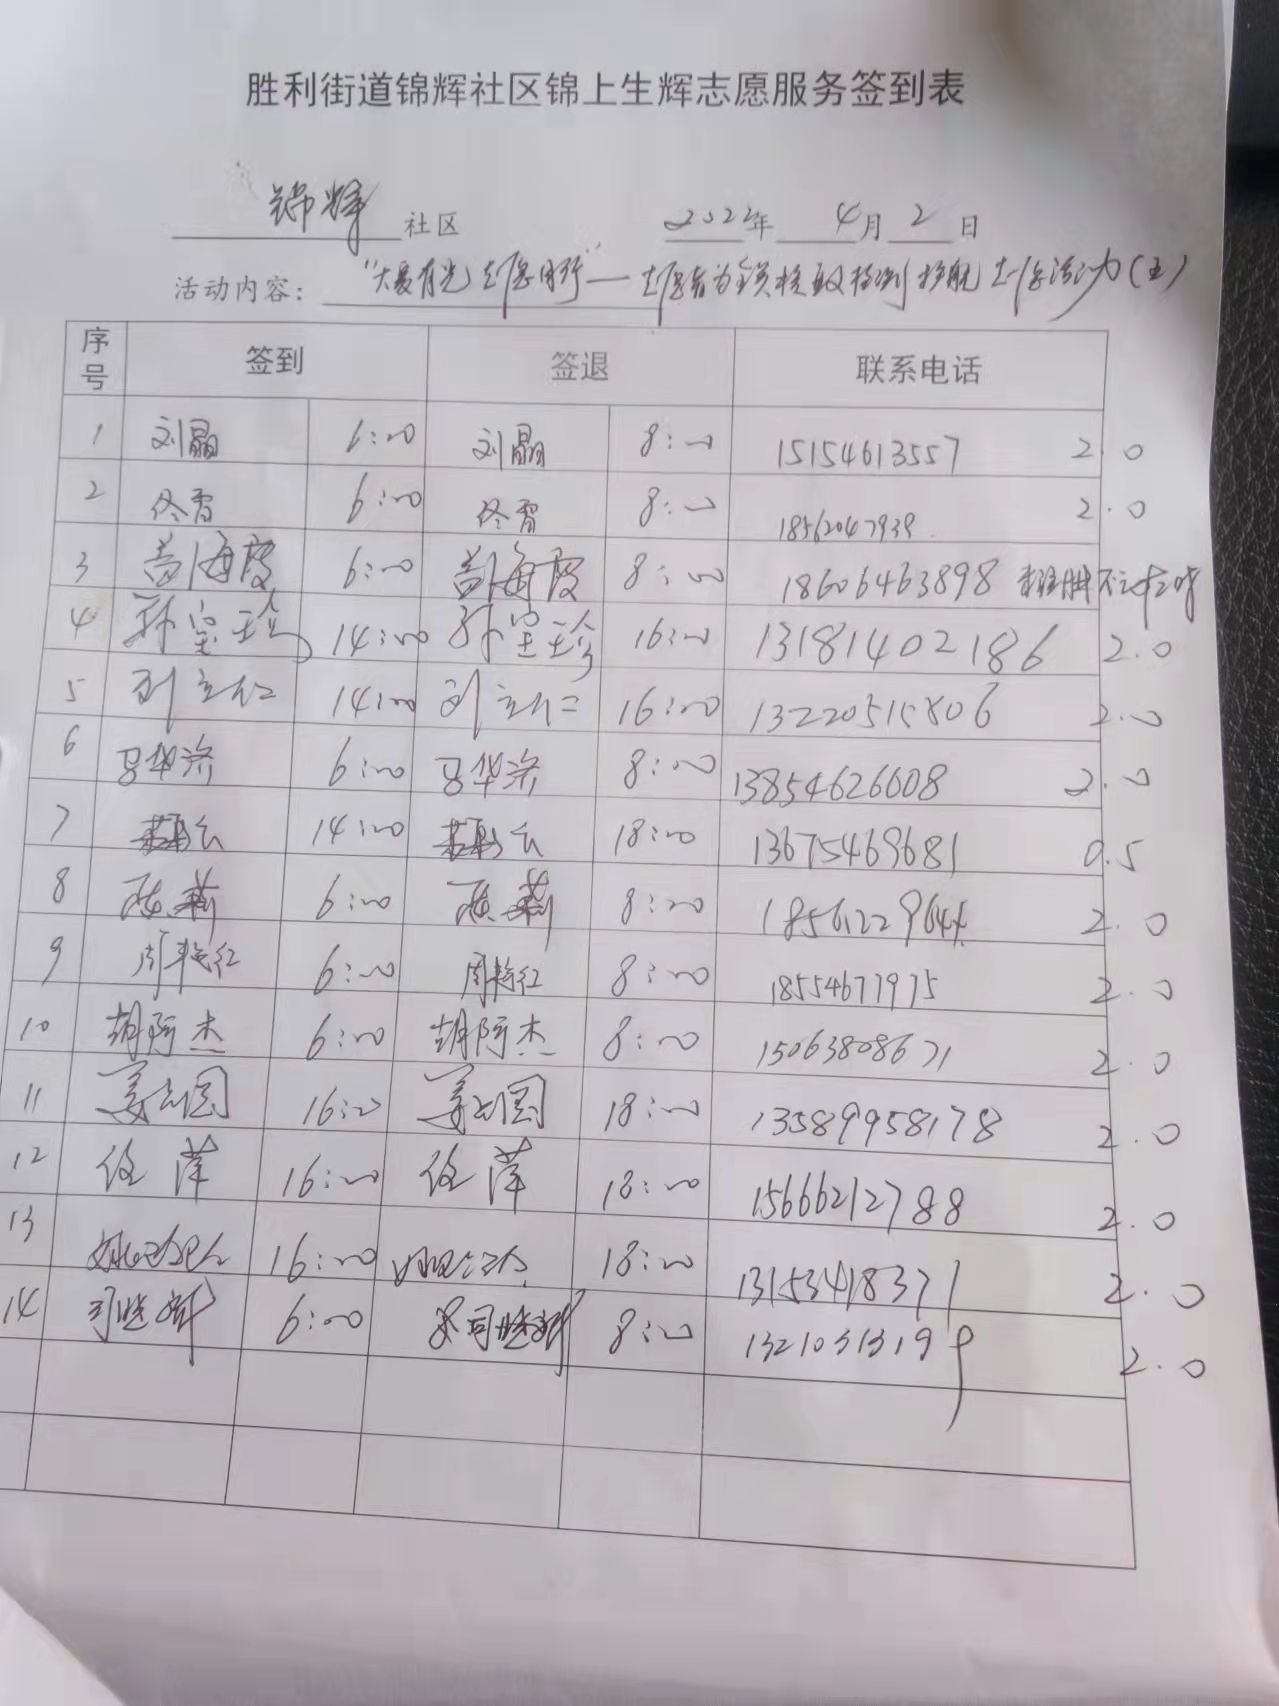 胜利街道锦辉社区锦上生辉志愿服务签到表
锦辉 社区 2022年 4月 2日
活动内容： "大爱有光 志愿同行"——志愿者为全员核酸检测护航志愿活动(五)
序号 签到 签退 联系电话
1 刘晶 6:00 刘晶 8:00 15154613557 2.0
2 佟雪 6:00 佟雪 8:00 18562047939 2.0
3 海霞 6:00 海霞 8:00 18606463898
4 孙宝珍 14:00 孙宝珍 16:00 13181402186 2.0
5 刘立仁 14:00 刘立仁 16:00 13220515806 2.0
6 马华济 6:00 马华济 8:00 13854626608 2.0
7 14:00 18:00 13675469681 0.5
8 陈莉 6:00 陈莉 8:00 1856122964 2.0
9 周艳红 6:00 周艳红 8:00 18554677975 2.0
10 胡阿杰 6:00 胡阿杰 8:00 15063808671 2.0
11 姜志国 16:00 姜志国 18:00 13589958178 2.0
12 任萍 16:00 任萍 18:00 15666212788 2.0
13 16:00 18:00 13153418371 2.0
14 司 6:00 司 8:00 13210313199 2.0